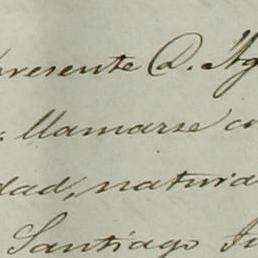 presente D. Ag
llamarse co
dad, natura
Santiago Ju